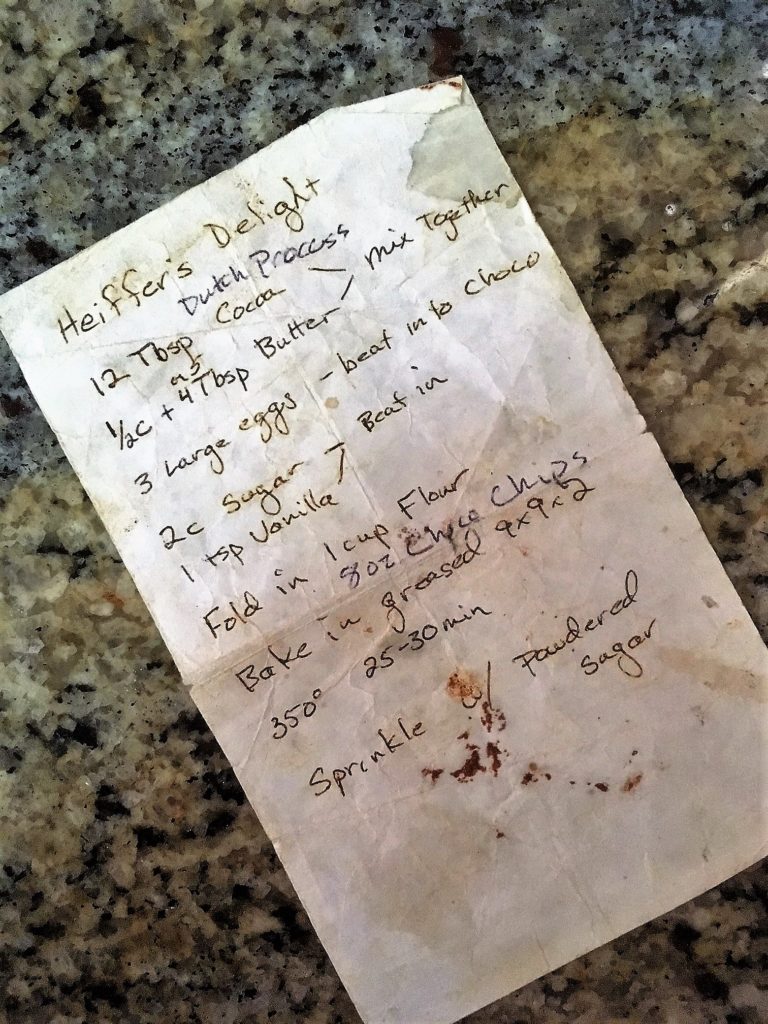 Heiffer's Delight
Dutch Process
12 Tbsp Cocoa Mix Together
½c + 4Tbsp Butter
3 Large eggs - beat into choco
2c Sugar Beat in
1 tsp Vanilla
Fold in 1 cup Flour
8oz Choco Chips
Bake in greased 9x9x2
350° 25-30min
Sprinkle w/ Powdered
Sugar